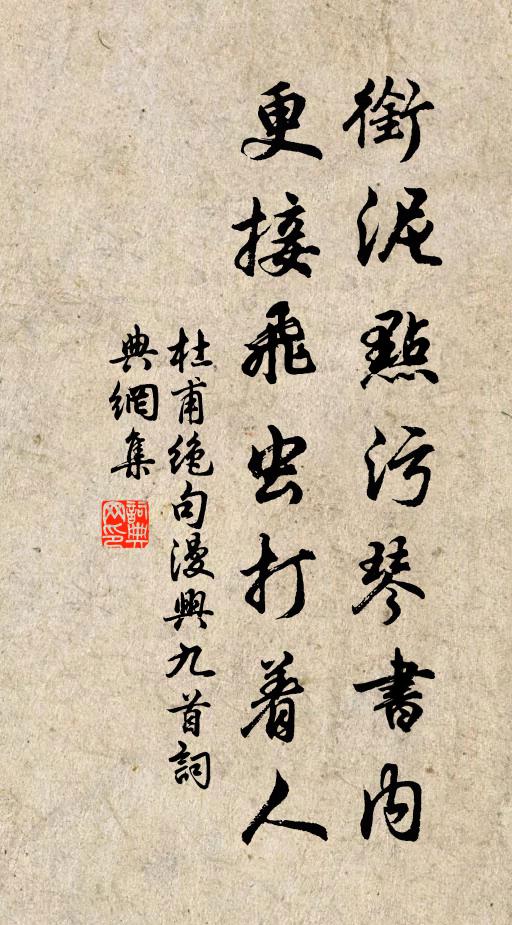 銜泥點污琴書內
更接飛虫打着人
杜甫絶句漫興九首詞
典網集
詞典网印